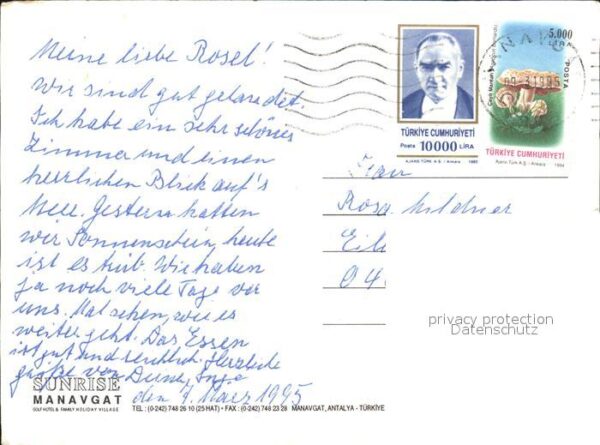 Meine liebe Rosel!
Wir sind gut gelandet.
Ich habe ein sehr schönes
Zimmer und einen
herrlichen Blick auf's
Meer. Gestern hatten
wir Sonnenschein, heute
ist es trüb. Wir haben
ja noch viele Tage vor
uns. Mal sehen, wie es
weiter geht. Das Essen
ist gut und reichlich. Herzliche
Grüße von Deiner Inge
den 9. März 1995
TÜRKİYE CUMHURİYETİ
Posta 10000 LİRA
AJANS-TÜRK A.Ş. / Ankara
5.000
LİRA
POSTA
TÜRKİYE CUMHURİYETİ
Ajans-Türk A.Ş. / Ankara 1994
Frau
Rosa
Eil
04
privacy protection
Datenschutz
SUNRISE
MANAVGAT
GOLF HOTEL & FAMILY HOLIDAY VILLAGE
TEL : (0-242) 748 26 10 (25 HAT) • FAX : (0-242) 748 23 28 MANAVGAT, ANTALYA - TÜRKİYE